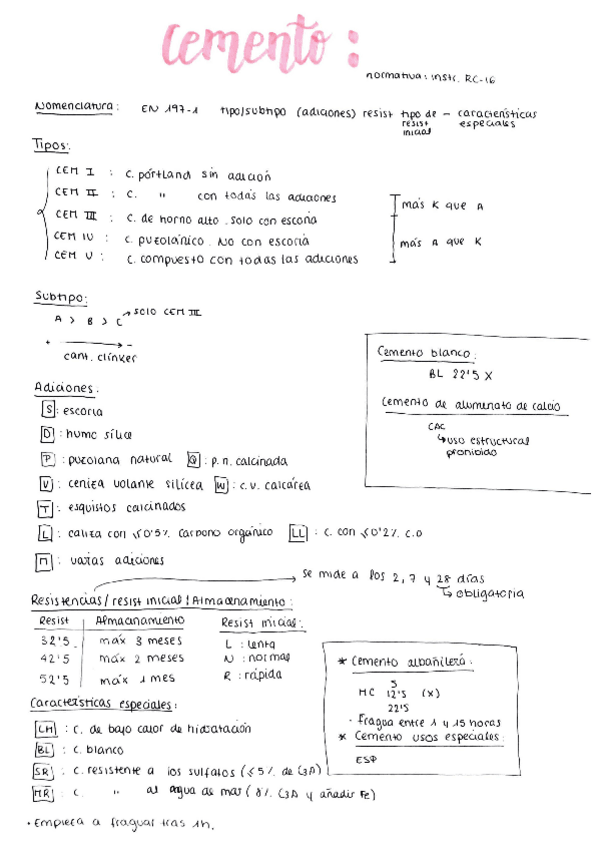 cemento :
normativa : instr. RC-16
Nomenclatura : EN 197-1 tipo/subtipo (adiciones) resist tipo de resist inicial – características especiales
Tipos:
CEM I : C. pórtland sin adición
CEM II : C. " con todas las adiciones
CEM III : C. de horno alto. Solo con escoria
CEM IV : C. puzolánico. No con escoria
CEM V : C. compuesto con todas las adiciones
más K que A
más A que K
Subtipo:
A > B > C → solo CEM III
+ → -
cant. clinker
Cemento blanco :
BL 22'5 X
Cemento de aluminato de calcio
CAC
↳ uso estructural prohibido
Adiciones :
S : escoria
D : humo sílice
P : puzolana natural Q : p.n. calcinada
V : ceniza volante silícea W : c.v. calcárea
T : esquistos calcinados
L : caliza con ≤0'5% carbono orgánico LL : c. con ≤0'2% c.o
M : varias adiciones
→ se mide a los 2, 7 y 28 días
↳ obligatoria
Resistencias / resist inicial / Almacenamiento :
Resist Almacenamiento Resist inicial :
32'5 máx 3 meses L : lenta
42'5 máx 2 meses N : normal
52'5 máx 1 mes R : rápida
* Cemento albañilería :
5
MC 12'5 (X)
22'5
· Fragua entre 1 y 15 horas
* Cemento usos especiales :
ESP
Características especiales :
LH : C. de bajo calor de hidratación
BL : C. blanco
SR : C. resistente a los sulfatos (≤5% de C3A)
MR : C. " al agua de mar ( % C3A y añadir Fe)
· Empieza a fraguar tras 1h.